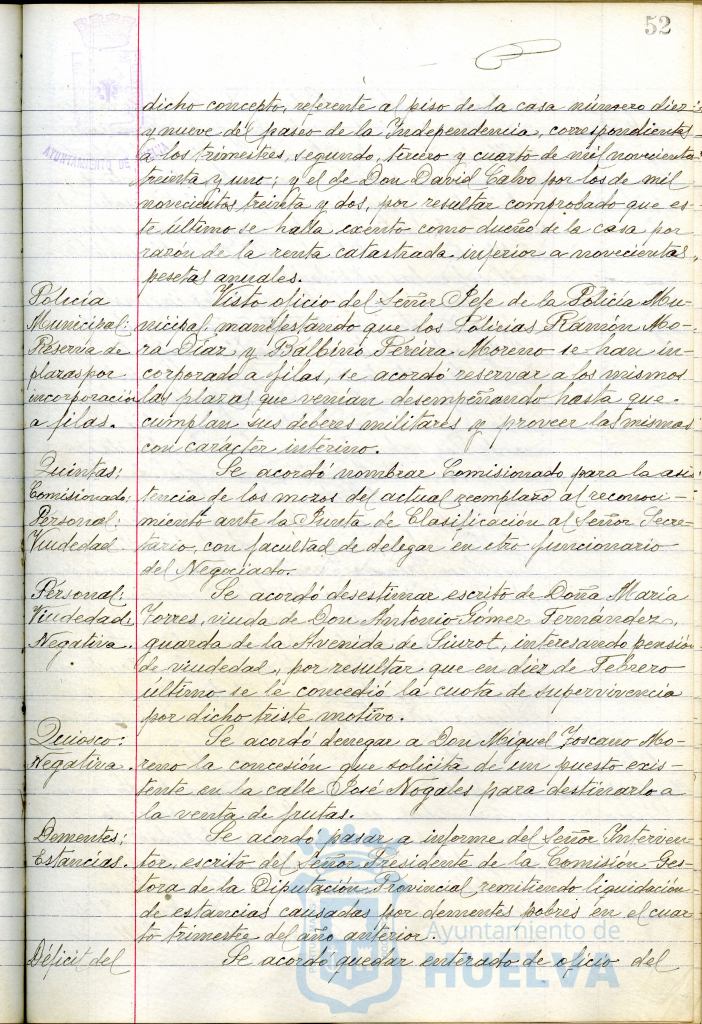 52
AYUNTAMIENTO DE HUELVA
dicho concepto, referente al piso de la casa número diez
y nueve del paseo de la Independencia, correspondientes
a los trimestres, segundo, tercero y cuarto de mil novecientos
treinta y uno; y el de Don David Calvo por los de mil
novecientos treinta y dos, por resultar comprobado que es-
te último se halla exento como dueño de la casa por
razón de la renta catastrada inferior a novecientas
pesetas anuales.
Policía
Municipal:
Reserva de
plazas por
incorporación
a filas.
Visto oficio del Señor Jefe de la Policía Mu-
nicipal, manifestando que los Policías Ramón Mo-
ra Díaz y Balbino Pereira Moreno se han in-
corporado a filas, se acordó reservar a los mismos
las plazas que venían desempeñando hasta que
cumplan sus deberes militares y proveer las mismas
con carácter interino.
Quintas:
Comisionado:
Personal:
Viudedad
Se acordó nombrar Comisionado para la asis-
tencia de los mozos del actual reemplazo al reconoci-
miento ante la Junta de Clasificación al Señor Secre-
tario, con facultad de delegar en otro funcionario
del Negociado.
Personal:
Viudedad:
Negativa.
Se acordó desestimar escrito de Doña María
Torres, viuda de Don Antonio Gómez Fernández,
guarda de la Avenida de Siurot, interesando pensión
de viudedad, por resultar que en diez de Febrero
último se le concedió la cuota de supervivencia
por dicho triste motivo.
Quiosco:
Negativa.
Se acordó denegar a Don Miguel Toscano Mo-
reno la concesión que solicita de un puesto exis-
tente en la calle José Nogales para destinarlo a
la venta de frutas.
Dementes:
Estancias.
Se acordó pasar a informe del Señor Interven-
tor, escrito del Señor Presidente de la Comisión Ges-
tora de la Diputación Provincial remitiendo liquidación
de estancias causadas por dementes pobres en el cuar-
to trimestre del año anterior.
Déficit del
Se acordó quedar enterado de oficio del
Ayuntamiento de
HUELVA